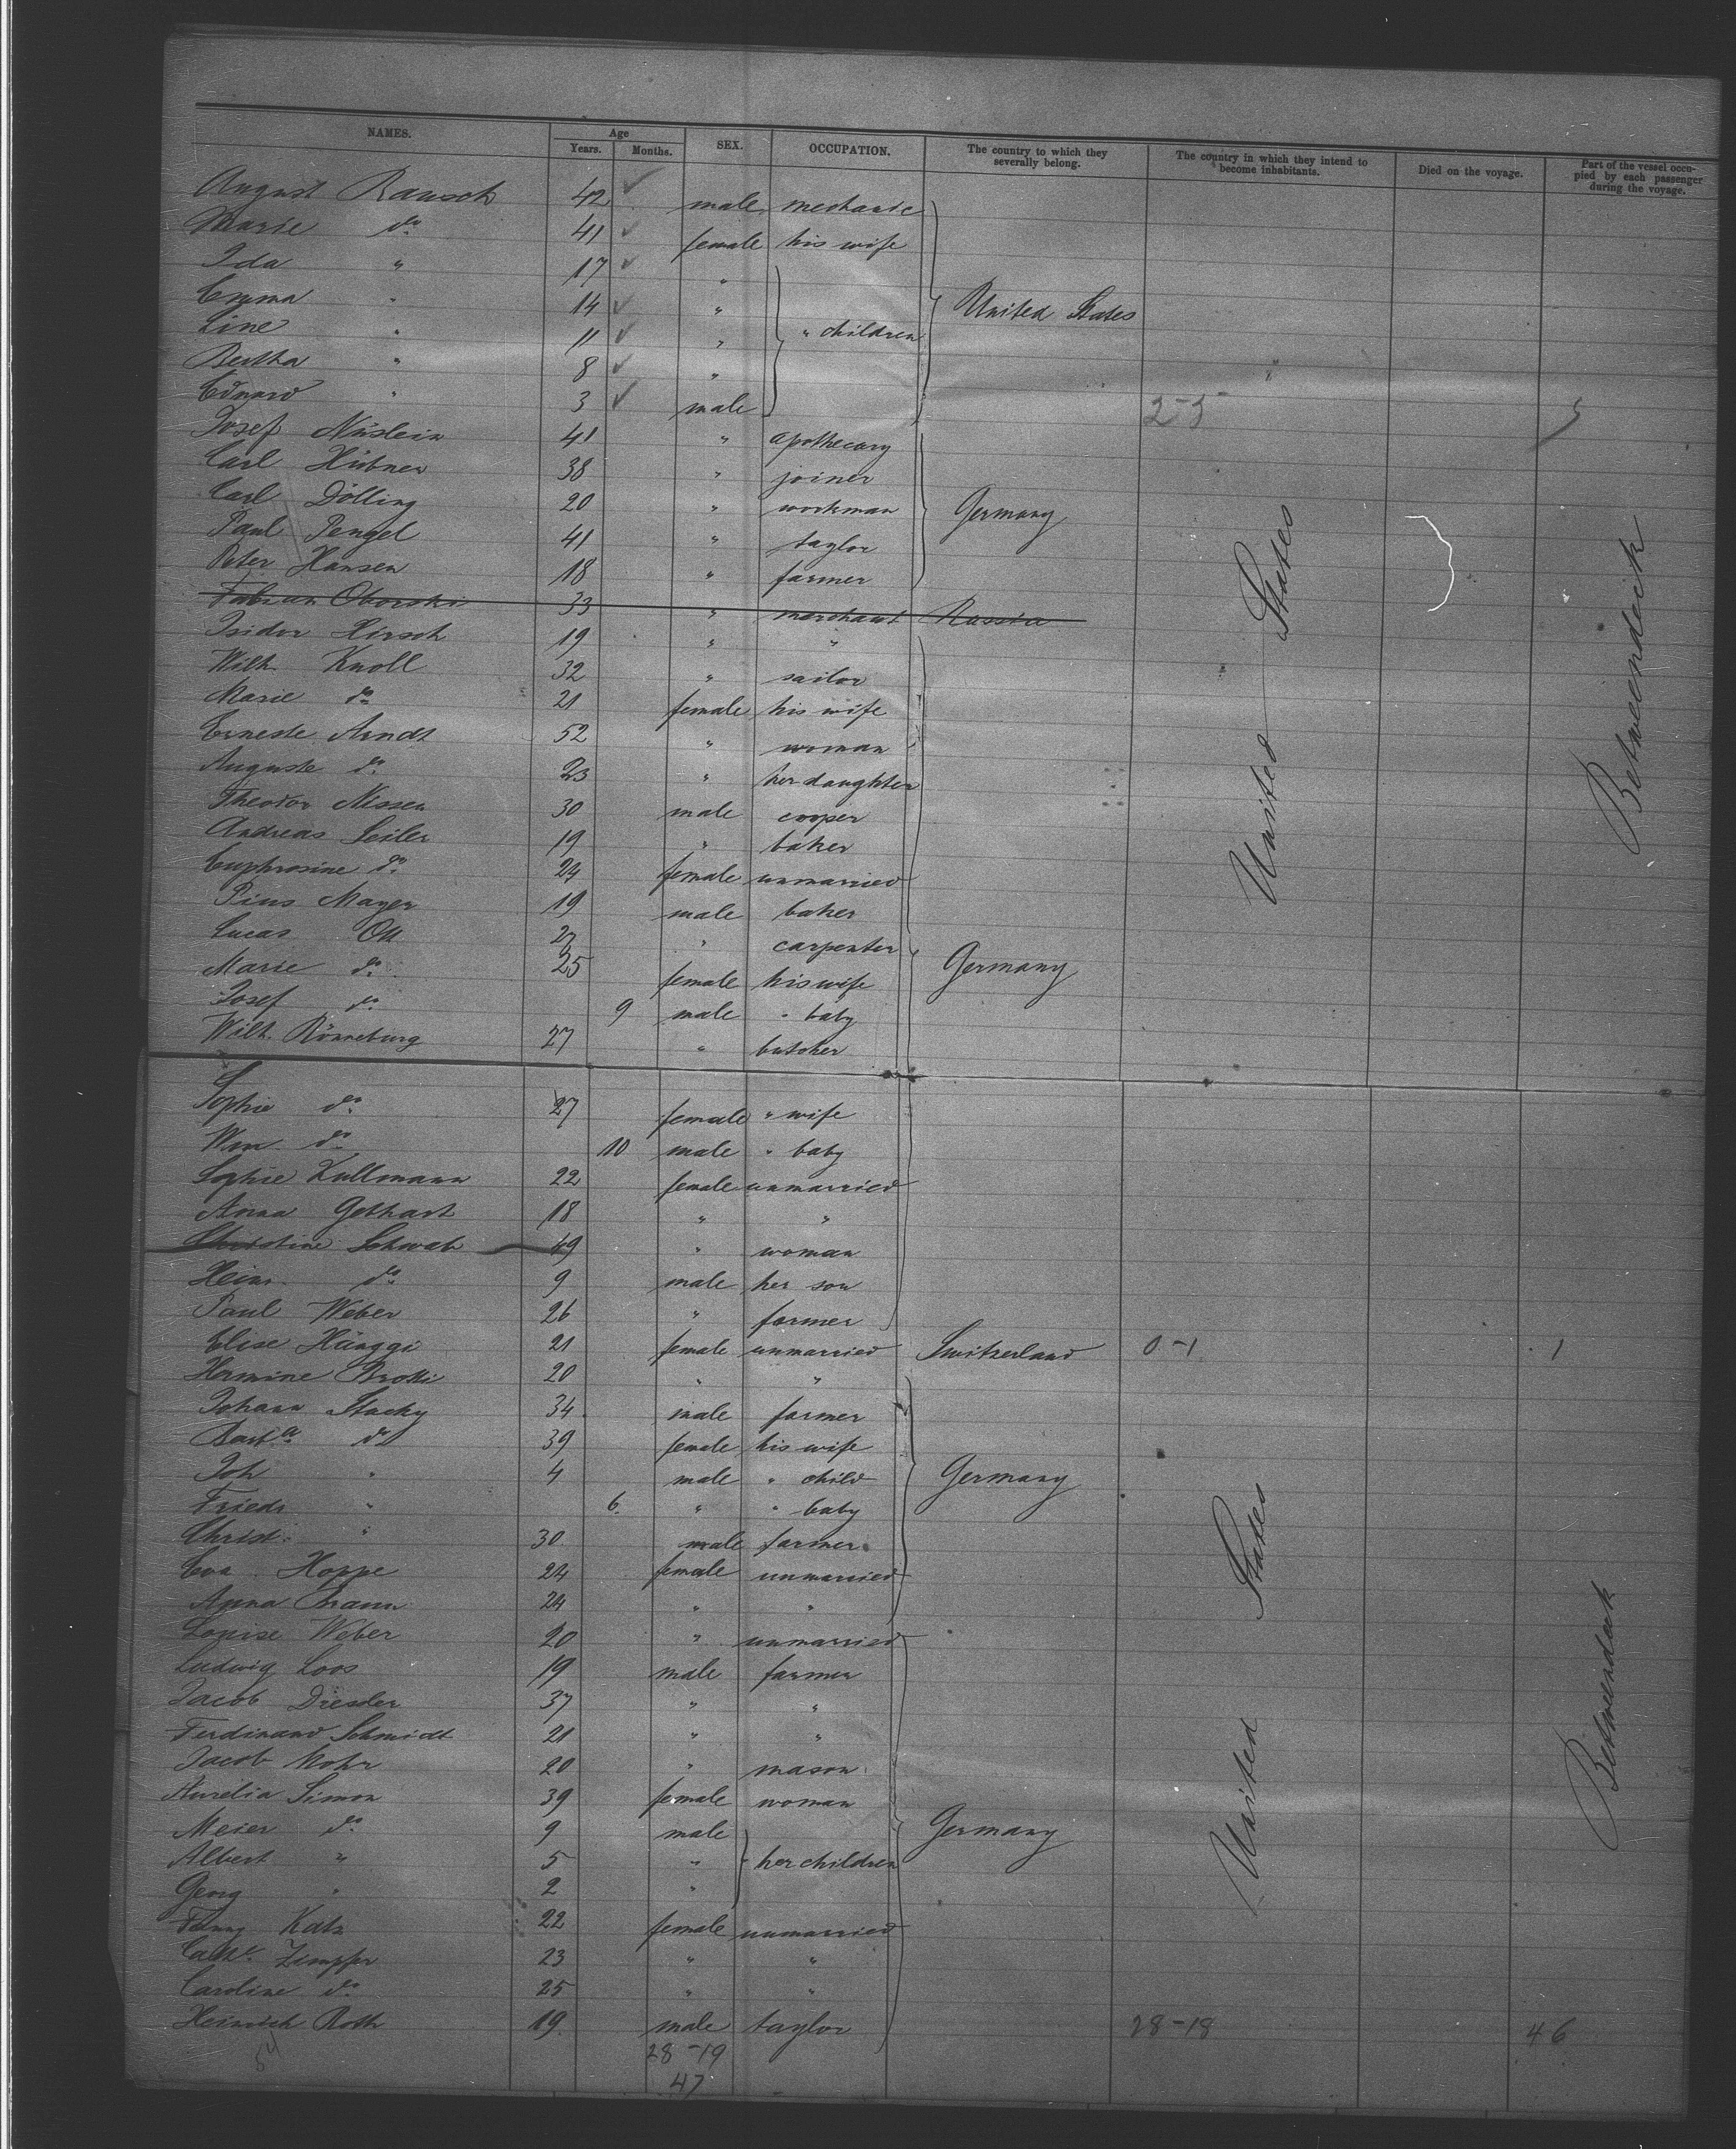 NAMES. Age Years. Months. SEX. OCCUPATION. The country to which they severally belong. The country in which they intend to become inhabitants. Died on the voyage. Part of the vessel occupied by each passenger during the voyage.
August Rausch 42 male mechanic
Marie do 41 female his wife
Ida " 17 "
Emma " 14 "
Line " 11 " " children United States
Bertha " 8 " "
Eduard " 3 male 2-5 5
Josef Nüslein 41 " apothecary
Carl Hübner 38 " joiner
Carl Dölling 20 " workman Germany
Paul Pengel 41 " taylor
Peter Hansen 18 " farmer
Fabian Oborski 33 " merchant Russia
Isidor Hirsch 19 " "
Wilh. Knoll 32 " sailor
Marie do 21 female his wife
Erneste Arndt 52 " woman
Auguste do 23 " her daughter
Theodor Nissen 30 male cooper
Andreas Seiler 19 " baker
Euphrosine do 24 female unmarried
Pius Mayer 19 male baker
Lucas Ott 27 " carpenter
Marie do 25 female his wife Germany
Josef do 9 male " baby
Wilh. Rönneburg 27 " butcher
United States
Betweendeck
Sophie do 27 female " wife
Wm. do 10 male " baby
Sophie Kullmann 22 female unmarried
Anna Gethart 18 " "
Christine Schwab 49 " woman
Heinr. do 9 male her son
Paul Weber 26 " farmer
Elise Hänggi 21 female unmarried Switzerland 0-1 1
Hermine Brotti 20 " "
Johann Stacky 34 male farmer
Barba do 39 female his wife
Joh " 4 male " child Germany
Friedr " 6 " " baby
Christ. " 30 male farmer
Eva Hoppe 24 female unmarried
Anna 24 " "
Louise Weber 20 " unmarried
Ludwig Loos 19 male farmer
Jacob Dressler 37 " "
Ferdinand Schmidt 21 " "
Jacob Mohr 20 " mason
Aurelia Simon 39 female woman
Meier do 9 male Germany
Albert " 5 " her children
Georg " 2 "
Fanny Katz 22 female unmarried
Cathe. Zimpfer 23 " "
Caroline do 25 " "
Heinrich Roth 19 male taylor 28-18 46
United States
Betweendeck
54 28-19
47